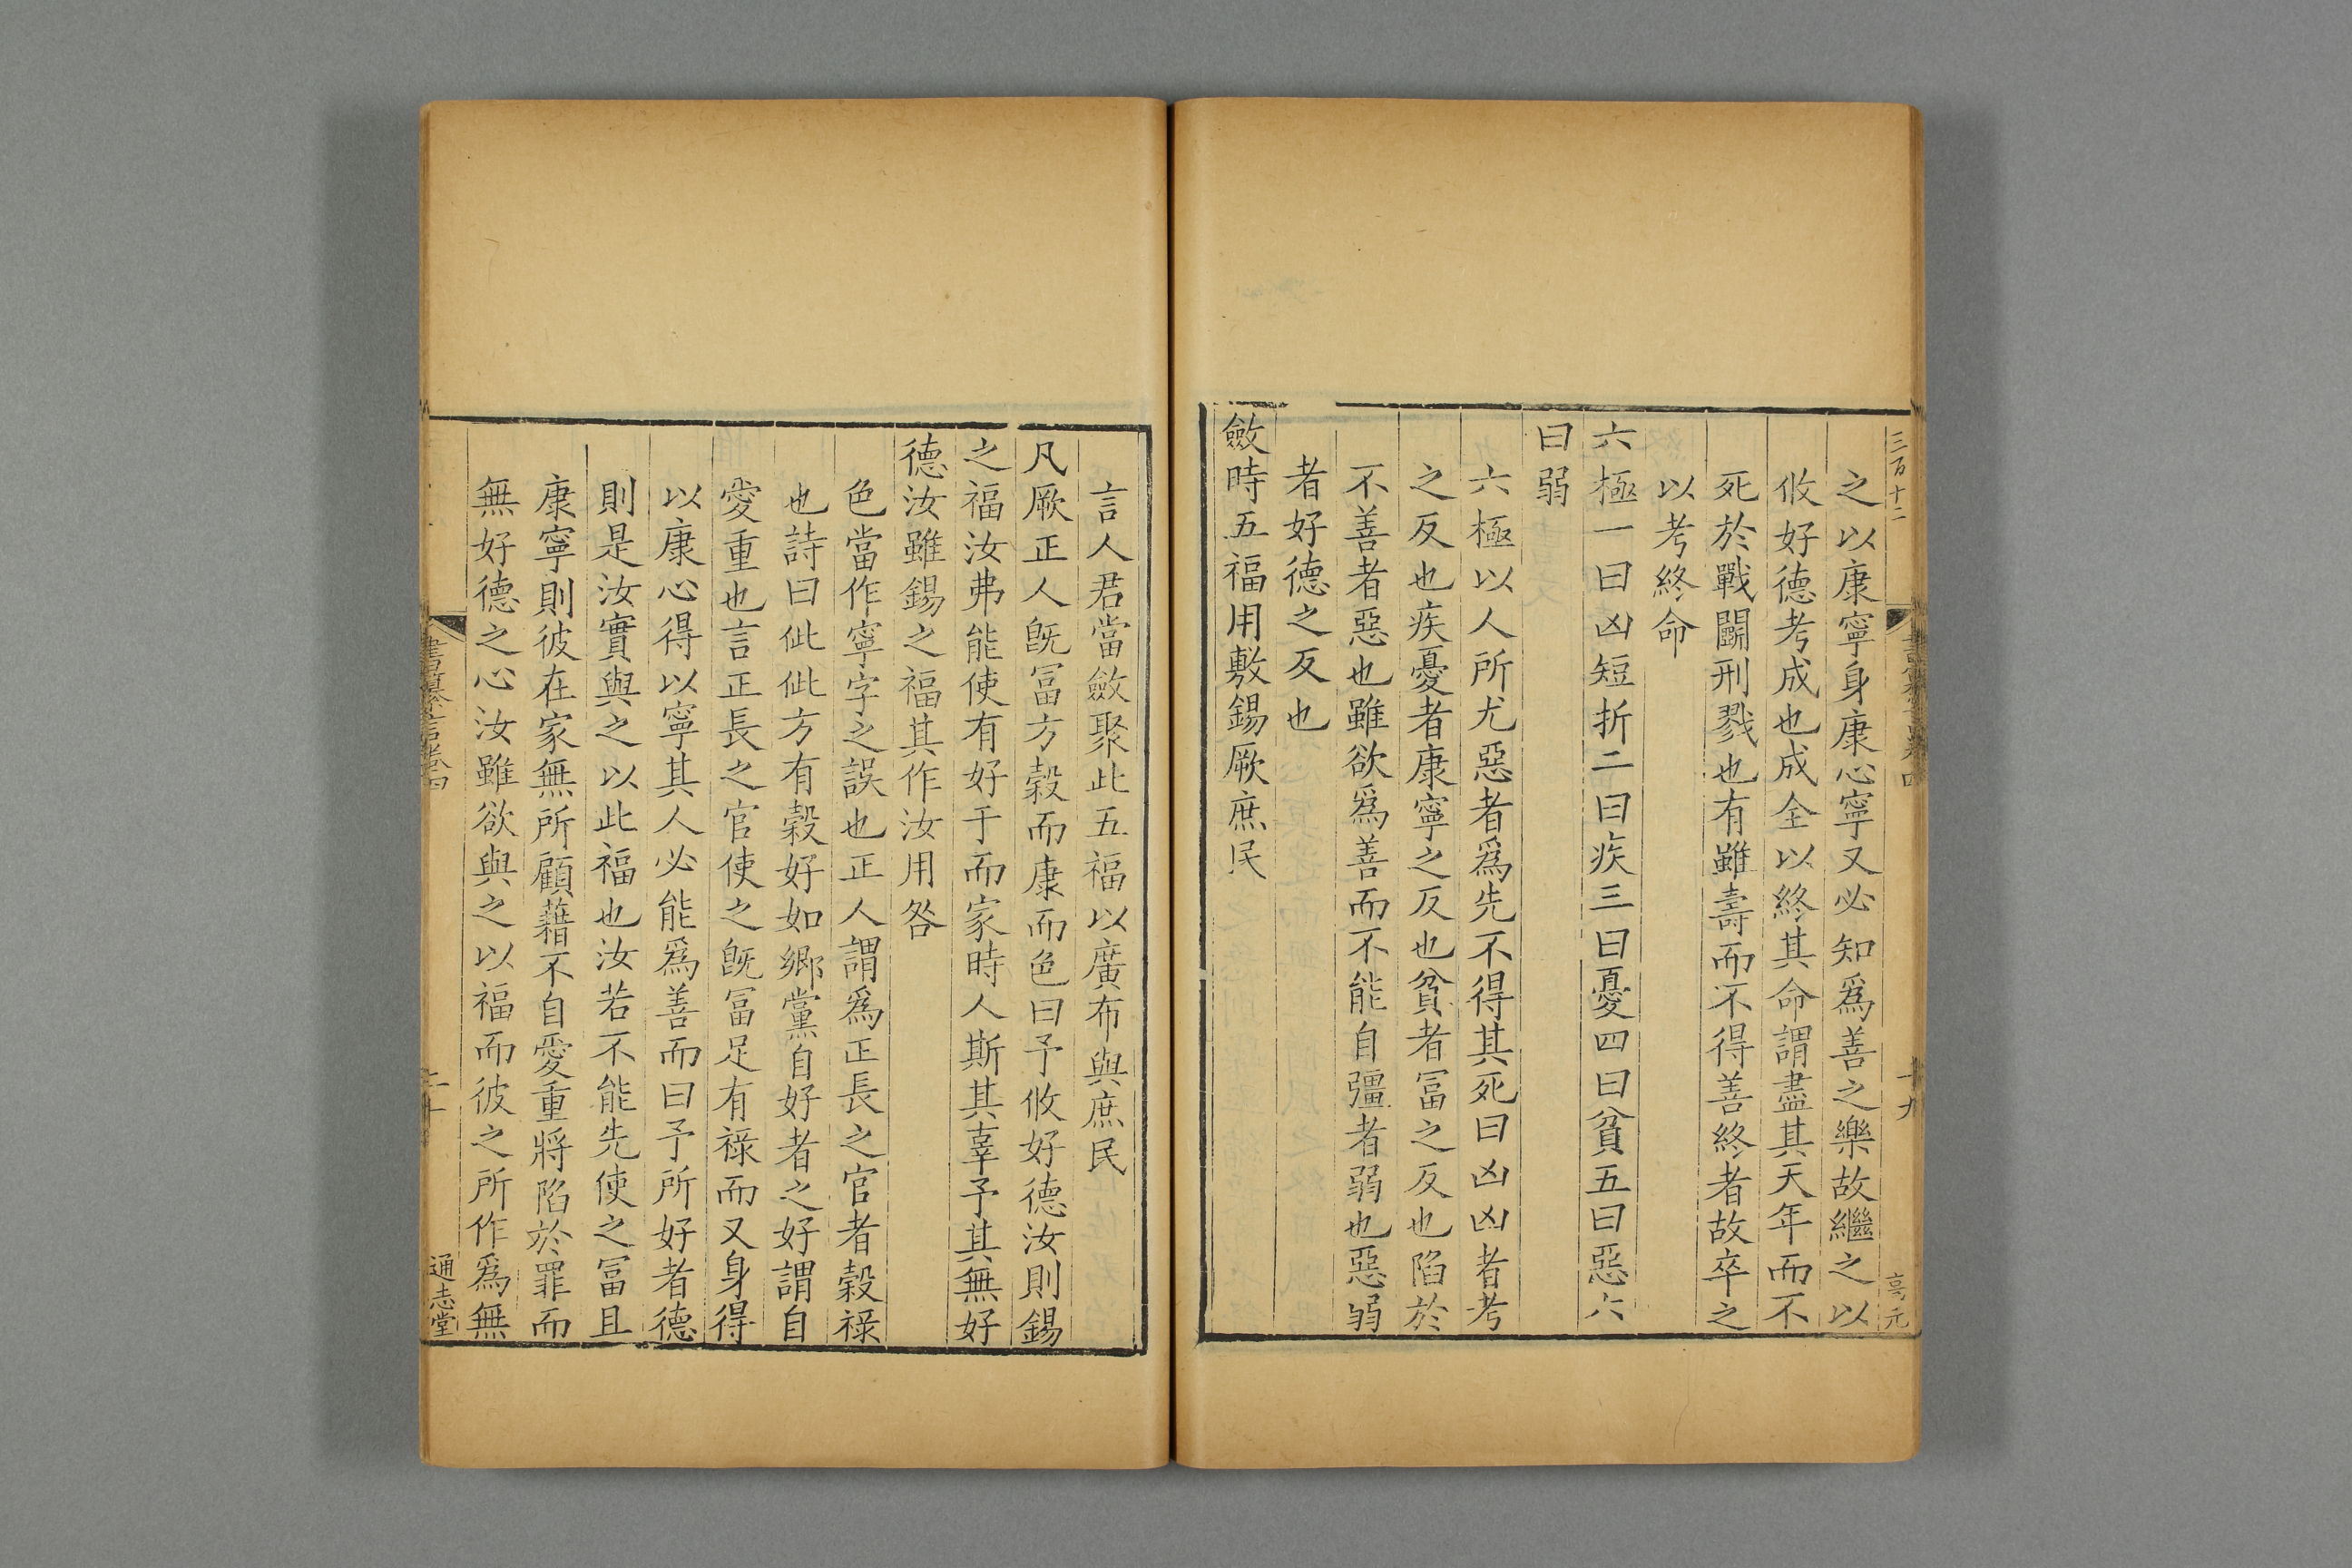 三百十二
十九
亨元
之以康寧身康心寧又必知爲善之樂故繼之以
攸好德考成也成全以終其命謂盡其天年而不
死於戰鬭刑戮也有雖壽而不得善終者故卒之
以考終命
六極一曰凶短折二曰疾三曰憂四曰貧五曰惡六
曰弱
六極以人所尤惡者爲先不得其死曰凶凶者考
之反也疾憂者康寧之反也貧者冨之反也陷於
不善者惡也雖欲爲善而不能自彊者弱也惡弱
者好德之反也
斂時五福用敷錫厥庶民
言人君當斂聚此五福以廣布與庶民
凡厥正人旣冨方穀而康而色曰予攸好德汝則錫
之福汝弗能使有好于而家時人斯其辜予其無好
德汝雖錫之福其作汝用咎
色當作寧字之誤也正人謂爲正長之官者穀祿
也詩曰佌佌方有穀好如鄉黨自好者之好謂自
愛重也言正長之官使之旣冨足有祿而又身得
以康心得以寧其人必能爲善而曰予所好者德
則是汝實與之以此福也汝若不能先使之冨且
康寧則彼在家無所顧藉不自愛重將陷於罪而
無好德之心汝雖欲與之以福而彼之所作爲無
書纂言卷四
二十
通志堂